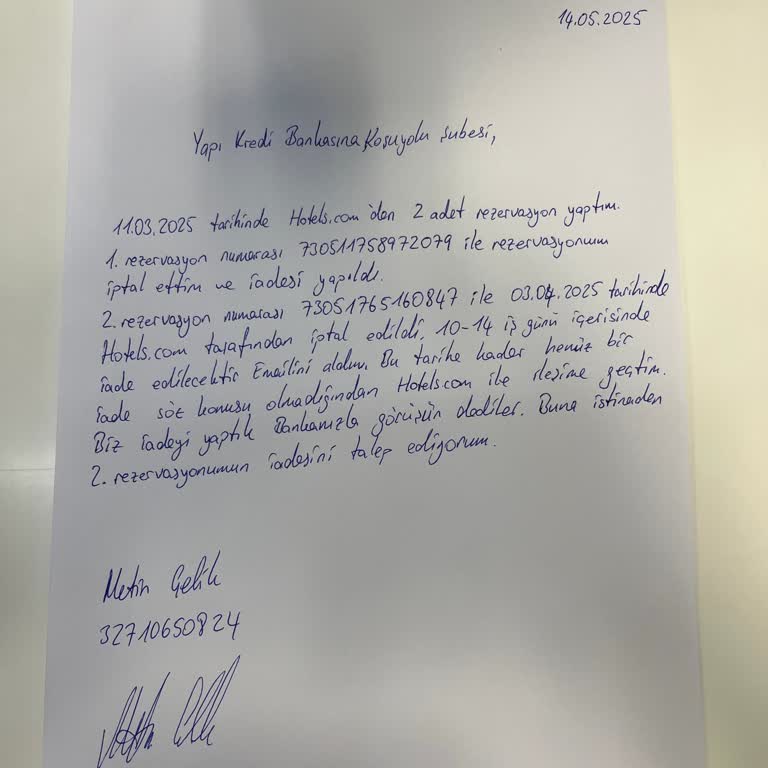 14.05.2025
Yapı Kredi Bankasına Koşuyolu şubesi,
11.03.2025 tarihinde Hotels.com'dan 2 adet rezervasyon yaptım.
1. rezervasyon numarası 730511758972079 ile rezervasyonum
iptal ettim ve iadesi yapıldı.
2. rezervasyon numarası 73051765160847 ile 03.04.2025 tarihinde
Hotels.com tarafından iptal edildi. 10-14 iş günü içerisinde
iade edilecektir Emailini aldım. Bu tarihe kadar henüz bir
iade söz konusu olmadığından Hotels.com ile iletişime geçtim.
Biz iadeyi yaptık Bankanızla görüşün dediler. Buna istinaden
2. rezervasyonumun iadesini talep ediyorum.
Metin Çelik
32710650824